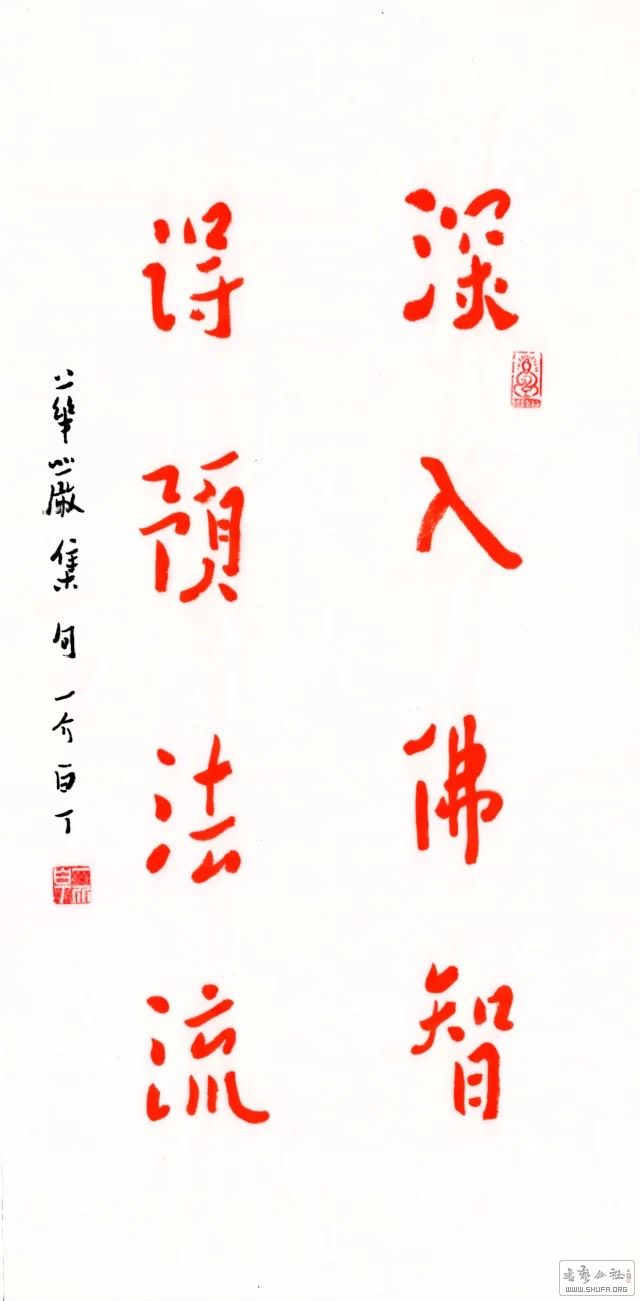 深入佛智
得預法流
華嚴集句 一介白丁
書藝公社
WWW.SHUFA.ORG